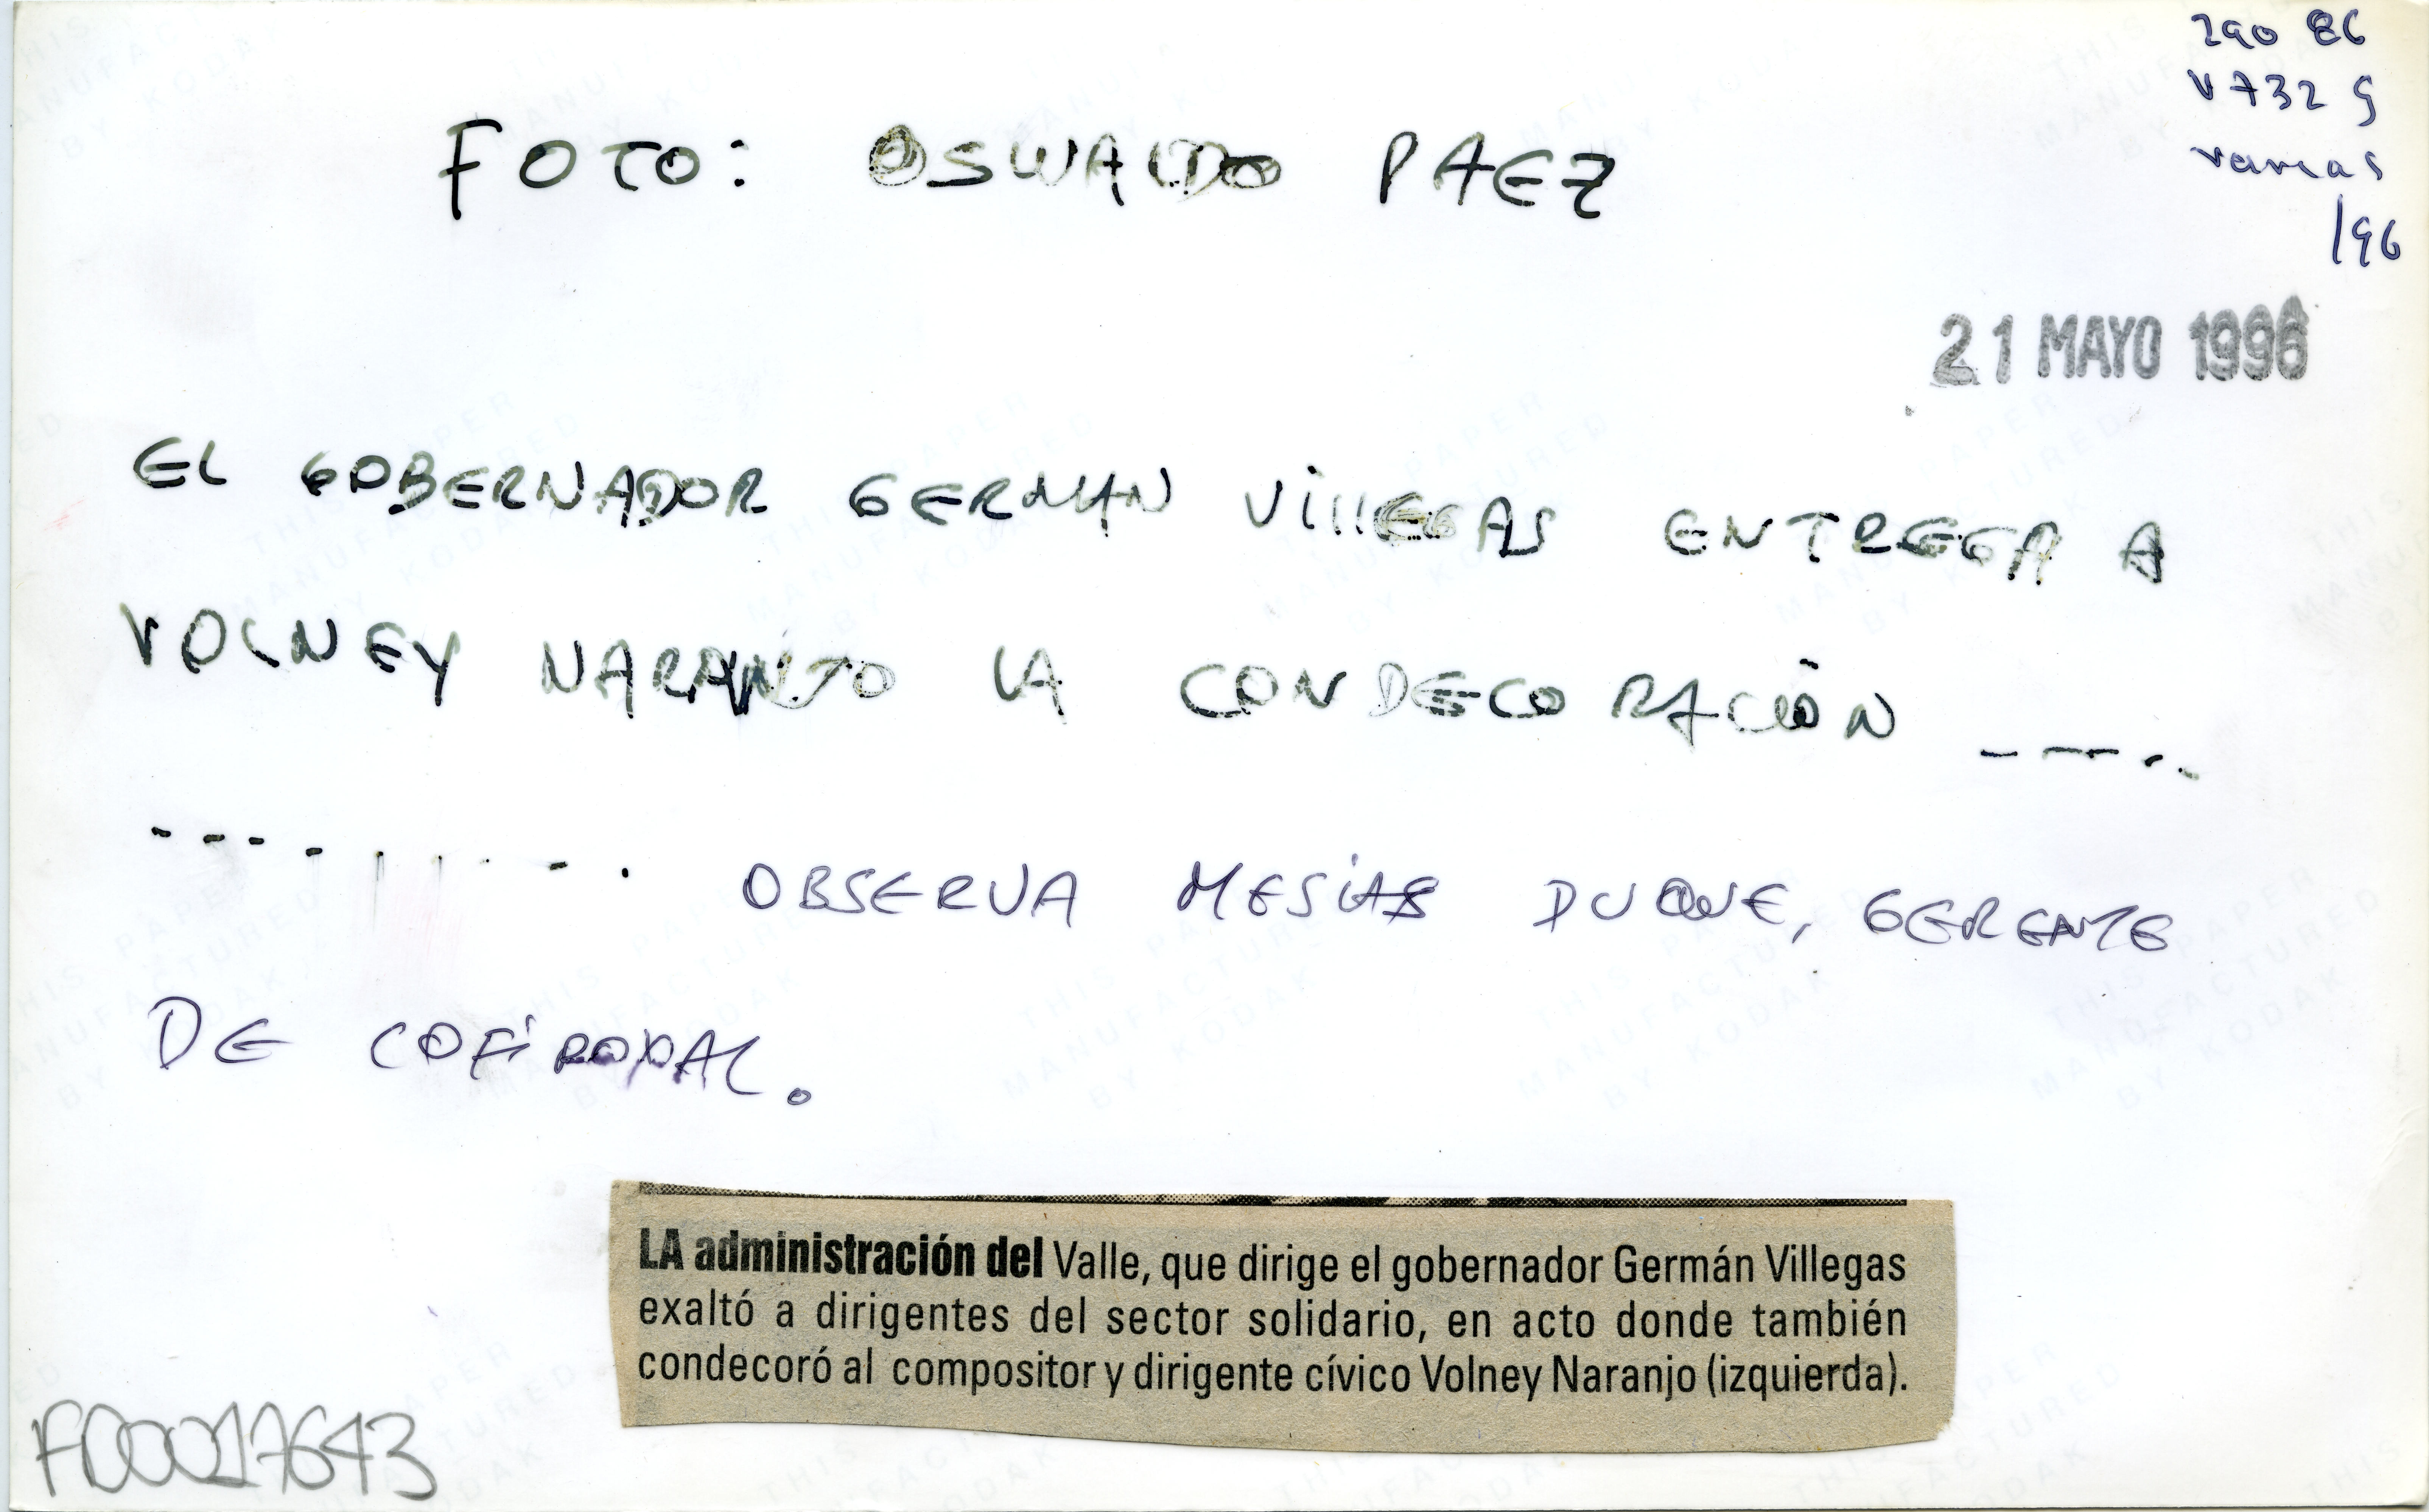 290 86
V732 G
varias
/96
FOTO: OSWALDO PAEZ
21 MAYO 1996
EL GOBERNADOR GERMAN VillEGAS ENTREGA A
VOLNEY NARANJO LA CONDECORACIÓN _ _ _ . .
- - - - - - - - - . OBSERVA MESiAS DUQUE, GERENTE
DE COFiROYAL.
LA administración del Valle, que dirige el gobernador Germán Villegas
exaltó a dirigentes del sector solidario, en acto donde también
condecoró al compositor y dirigente cívico Volney Naranjo (izquierda).
F00017643
THIS PAPER
MANUFACTURED
BY KODAK